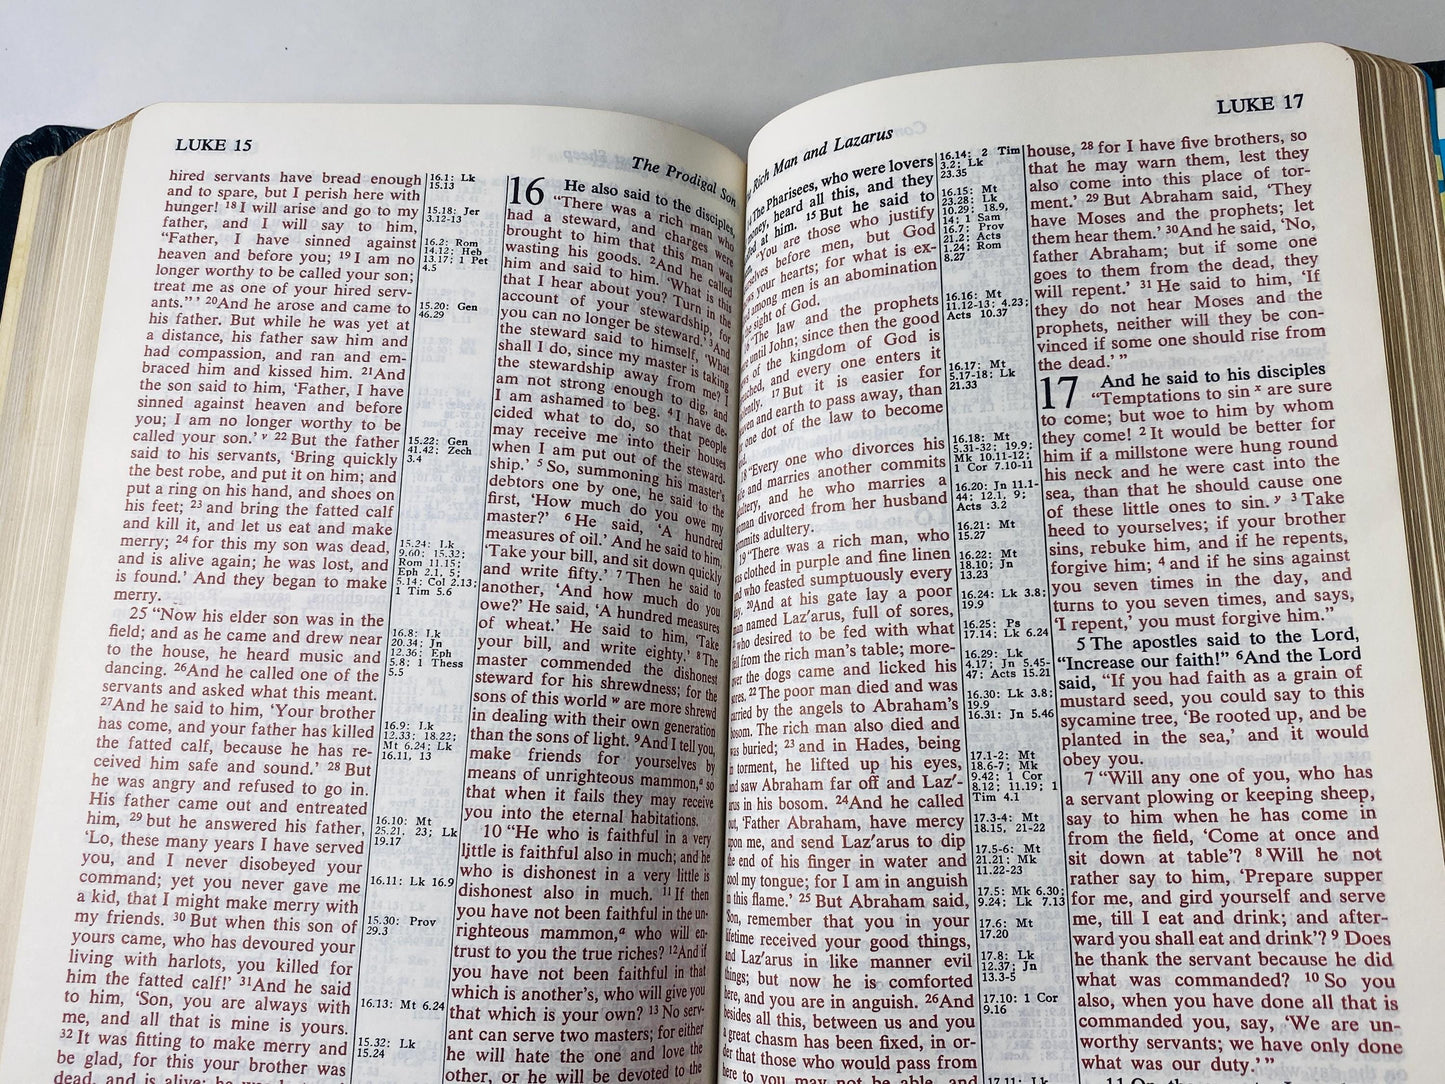 LUKE 15
The Prodigal Son
hired servants have bread enough
and to spare, but I perish here with
hunger! 18 I will arise and go to my
father, and I will say to him,
“Father, I have sinned against
heaven and before you; 19 I am no
longer worthy to be called your son;
treat me as one of your hired serv-
ants.” ’ 20 And he arose and came to
his father. But while he was yet at
a distance, his father saw him and
had compassion, and ran and em-
braced him and kissed him. 21 And
the son said to him, ‘Father, I have
sinned against heaven and before
you; I am no longer worthy to be
called your son.’ v 22 But the father
said to his servants, ‘Bring quickly
the best robe, and put it on him; and
put a ring on his hand, and shoes on
his feet; 23 and bring the fatted calf
and kill it, and let us eat and make
merry; 24 for this my son was dead,
and is alive again; he was lost, and
is found.’ And they began to make
merry.
25 “Now his elder son was in the
field; and as he came and drew near
to the house, he heard music and
dancing. 26 And he called one of the
servants and asked what this meant.
27 And he said to him, ‘Your brother
has come, and your father has killed
the fatted calf, because he has re-
ceived him safe and sound.’ 28 But
he was angry and refused to go in.
His father came out and entreated
him, 29 but he answered his father,
‘Lo, these many years I have served
you, and I never disobeyed your
command; yet you never gave me
a kid, that I might make merry with
my friends. 30 But when this son of
yours came, who has devoured your
living with harlots, you killed for
him the fatted calf!’ 31 And he said
to him, ‘Son, you are always with
me, and all that is mine is yours.
32 It was fitting to make merry and
be glad, for this your brother was
dead, and is alive;
16.1: Lk
15.13
15.18: Jer
3.12-13
16.2: Rom
14.12: Heb
13.17: 1 Pet
4.5
15.20: Gen
46.29
15.22: Gen
41.42: Zech
3.4
15.24: Lk
9.60: 15.32;
Rom 11.15;
Eph 2.1, 5;
5.14: Col 2.13;
1 Tim 5.6
16.8: Lk
20.34; Jn
12.36; Eph
5.8; 1 Thess
5.5
16.9: Lk
12.33; 18.22;
Mt 6.24; Lk
16.11, 13
16.10: Mt
25.21, 23; Lk
19.17
16.11: Lk 16.9
15.30: Prov
29.3
16.13: Mt 6.24
15.32: Lk
15.24
16 He also said to the disciples,
“There was a rich man who
had a steward, and charges were
brought to him that this man was
wasting his goods. 2 And he called
him and said to him. ‘What is this
that I hear about you? Turn in the
account of your stewardship, for
you can no longer be steward.’ 3 And
the steward said to himself, ‘What
shall I do, since my master is taking
the stewardship away from me? I
am not strong enough to dig, and
I am ashamed to beg. 4 I have de-
cided what to do, so that people
may receive me into their houses
when I am put out of the steward-
ship.’ 5 So, summoning his master’s
debtors one by one, he said to the
first, ‘How much do you owe my
master?’ 6 He said, ‘A hundred
measures of oil.’ And he said to him,
‘Take your bill, and sit down quickly
and write fifty.’ 7 Then he said to
another, ‘And how much do you
owe?’ He said, ‘A hundred measures
of wheat.’ He said to him, ‘Take
your bill, and write eighty.’ 8 The
master commended the dishonest
steward for his shrewdness; for the
sons of this world w are more shrewd
in dealing with their own generation
than the sons of light. 9 And I tell you,
make friends for yourselves by
means of unrighteous mammon, a so
that when it fails they may receive
you into the eternal habitations.
10 “He who is faithful in a very
little is faithful also in much; and he
who is dishonest in a very little is
dishonest also in much. 11 If then
you have not been faithful in the un-
righteous mammon, a who will en-
trust to you the true riches? 12 And if
you have not been faithful in that
which is another’s, who will give you
that which is your own? 13 No serv-
ant can serve two masters; for either
he will hate the one and love the
other, or he will be devoted to the
Rich Man and Lazarus
LUKE 17
The Pharisees, who were lovers
heard all this, and they
at him. 15 But he said to
“You are those who justify
before men, but God
your hearts; for what is ex-
among men is an abomination
the sight of God.
“The law and the prophets
until John; since then the good
of the kingdom of God is
and every one enters it
17 But it is easier for
and earth to pass away, than
one dot of the law to become
18 “Every one who divorces his
and marries another commits
and he who marries a
divorced from her husband
adultery.
19 “There was a rich man, who
clothed in purple and fine linen
and who feasted sumptuously every
20 And at his gate lay a poor
named Laz′arus, full of sores,
who desired to be fed with what
fell from the rich man’s table; more-
over the dogs came and licked his
22 The poor man died and was
carried by the angels to Abraham’s
bosom. The rich man also died and
was buried; 23 and in Hades, being
in torment, he lifted up his eyes,
and saw Abraham far off and Laz′-
arus in his bosom. 24 And he called
out, ‘Father Abraham, have mercy
upon me, and send Laz′arus to dip
the end of his finger in water and
cool my tongue; for I am in anguish
in this flame.’ 25 But Abraham said,
‘Son, remember that you in your
lifetime received your good things,
and Laz′arus in like manner evil
things; but now he is comforted
here, and you are in anguish. 26 And
besides all this, between us and you
a great chasm has been fixed, in or-
der that those who would pass from
here to you may not be able, and
16.14: 2 Tim
3.2; Lk
23.35
16.15: Mt
23.28; Lk
10.29; 18.9,
14; 1 Sam
16.7; Prov
21.2; Acts
1.24; Rom
8.27
16.16: Mt
11.12-13; 4.23;
Acts 10.37
16.17: Mt
5.17-18; Lk
21.33
16.18: Mt
5.31-32; 19.9;
Mk 10.11-12;
1 Cor 7.10-11
16.20: Jn 11.1-
44; 12.1, 9;
Acts 3.2
16.21: Mt
15.27
16.22: Mt
18.10; Jn
13.23
16.24: Lk 3.8;
19.9
16.25: Ps
17.14; Lk 6.24
16.29: Lk
4.17; Jn 5.45-
47; Acts 15.21
16.30: Lk 3.8;
19.9
16.31: Jn 5.46
17.1-2: Mt
18.6-7; Mk
9.42; 1 Cor
8.12; 11.19; 1
Tim 4.1
17.3-4: Mt
18.15, 21-22
17.5-6: Mt
21.21; Mk
11.22-23
17.5: Mk 6.30;
9.24; Lk 7.13
17.6: Mt
17.20
17.8: Lk
12.37; Jn
13.3-5
17.10: 1 Cor
9.16
17.11: Lk
house, 28 for I have five brothers, so
that he may warn them, lest they
also come into this place of tor-
ment.’ 29 But Abraham said, ‘They
have Moses and the prophets; let
them hear them.’ 30 And he said, ‘No,
father Abraham; but if some one
goes to them from the dead, they
will repent.’ 31 He said to him, ‘If
they do not hear Moses and the
prophets, neither will they be con-
vinced if some one should rise from
the dead.’ ”
17 And he said to his disciples
“Temptations to sin x are sure
to come; but woe to him by whom
they come! 2 It would be better for
him if a millstone were hung round
his neck and he were cast into the
sea, than that he should cause one
of these little ones to sin. y 3 Take
heed to yourselves; if your brother
sins, rebuke him, and if he repents,
forgive him; 4 and if he sins against
you seven times in the day, and
turns to you seven times, and says,
‘I repent,’ you must forgive him.”
5 The apostles said to the Lord,
“Increase our faith!” 6 And the Lord
said, “If you had faith as a grain of
mustard seed, you could say to this
sycamine tree, ‘Be rooted up, and be
planted in the sea,’ and it would
obey you.
7 “Will any one of you, who has
a servant plowing or keeping sheep,
say to him when he has come in
from the field, ‘Come at once and
sit down at table’? 8 Will he not
rather say to him, ‘Prepare supper
for me, and gird yourself and serve
me, till I eat and drink; and after-
ward you shall eat and drink’? 9 Does
he thank the servant because he did
what was commanded? 10 So you
also, when you have done all that is
commanded you, say, ‘We are un-
worthy servants; we have only done
what was our duty.’ ”